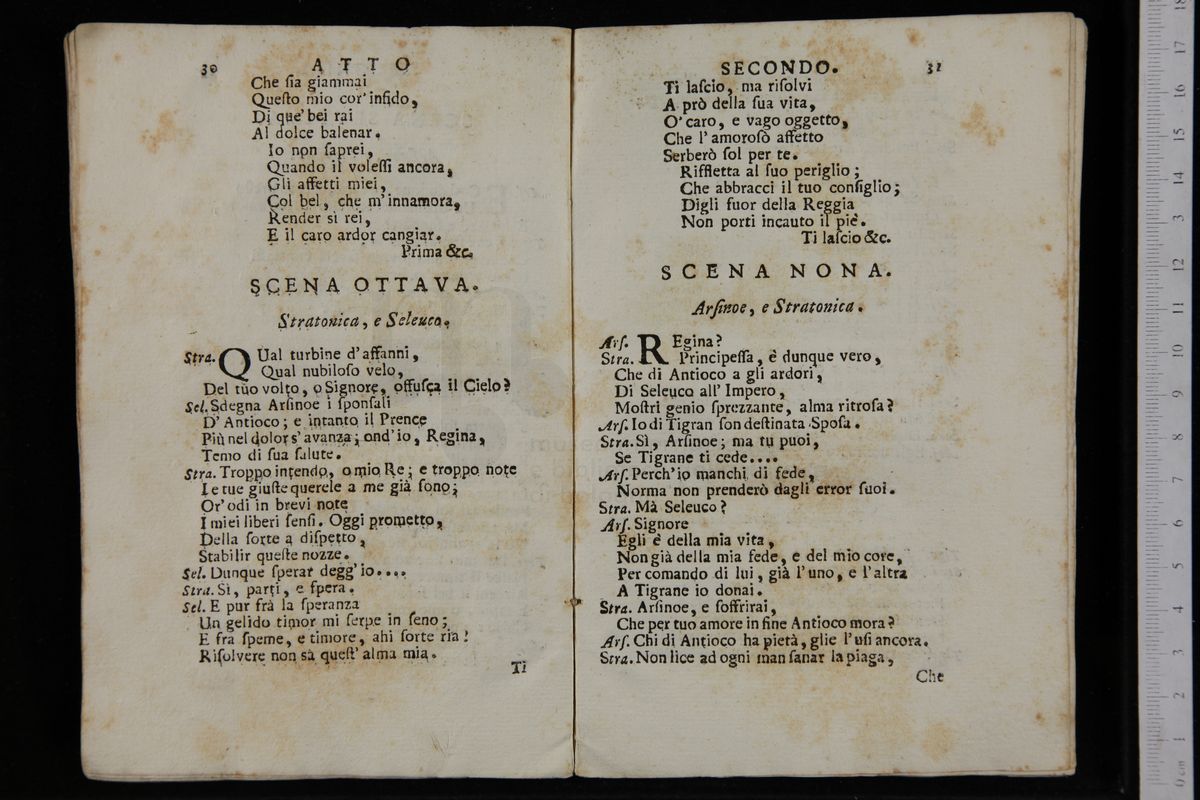 30 ATTO
Che ſia giammai
Queſto mio cor' infido,
Di que' bei rai
Al dolce balenar.
Io non ſaprei,
Quando il voleſſi ancora,
Gli affetti miei,
Col bel, che m' innamora,
Render sì rei,
E il caro ardor cangiar.
Prima &c.
SCENA OTTAVA.
Stratonica, e Seleuco.
Stra. QUal turbine d' affanni,
Qual nubiloſo velo,
Del tuo volto, o Signore, offuſca il Cielo?
Sel. Sdegna Arſinoe i ſponſali
D' Antioco; e intanto il Prence
Più nel dolor s' avanza; ond' io, Regina,
Temo di ſua ſalute.
Stra. Troppo intendo, o mio Re; e troppo note
Le tue giuſte querele a me già ſono;
Or' odi in brevi note
I miei liberi ſenſi. Oggi prometto,
Della ſorte a diſpetto,
Stabilir queſte nozze.
Sel. Dunque ſperar degg' io....
Stra. Sì, parti, e ſpera.
Sel. E pur frà la ſperanza
Un gelido timor mi ſerpe in ſeno;
E fra ſpeme, e timore, ahi ſorte ria!
Riſolvere non sà queſt' alma mia.
Ti
SECONDO. 31
Ti laſcio, ma riſolvi
A prò della ſua vita,
O' caro, e vago oggetto,
Che l' amoroſò affetto
Serberò ſol per te.
Riffletta al ſuo periglio;
Che abbracci il tuo conſiglio;
Digli fuor della Reggia
Non porti incauto il piè.
Ti laſcio &c.
SCENA NONA.
Arſinoe, e Stratonica.
Arſ. REgina?
Stra. Principeſſa, è dunque vero,
Che di Antioco a gli ardori,
Di Seleuco all' Impero,
Moſtri genio ſprezzante, alma ritroſa?
Arſ. Io di Tigran ſon deſtinata Spoſa.
Stra. Sì, Arſinoe; ma tu puoi,
Se Tigrane ti cede....
Arſ. Perch' io manchi di fede,
Norma non prenderò dagli error ſuoi.
Stra. Mà Seleuco?
Arſ. Signore
Egli è della mia vita,
Non già della mia fede, e del mio core,
Per comando di lui, già l' uno, e l' altra
A Tigrane io donai.
Stra. Arſinoe, e ſoffrirai,
Che per tuo amore in fine Antioco mora?
Arſ. Chi di Antioco ha pietà, glie l' uſi ancora.
Stra. Non lice ad ogni man ſanar la piaga,
Che
0 cm 1 2 3 4 5 6 7 8 9 10 11 12 3 14 15 16 17 18